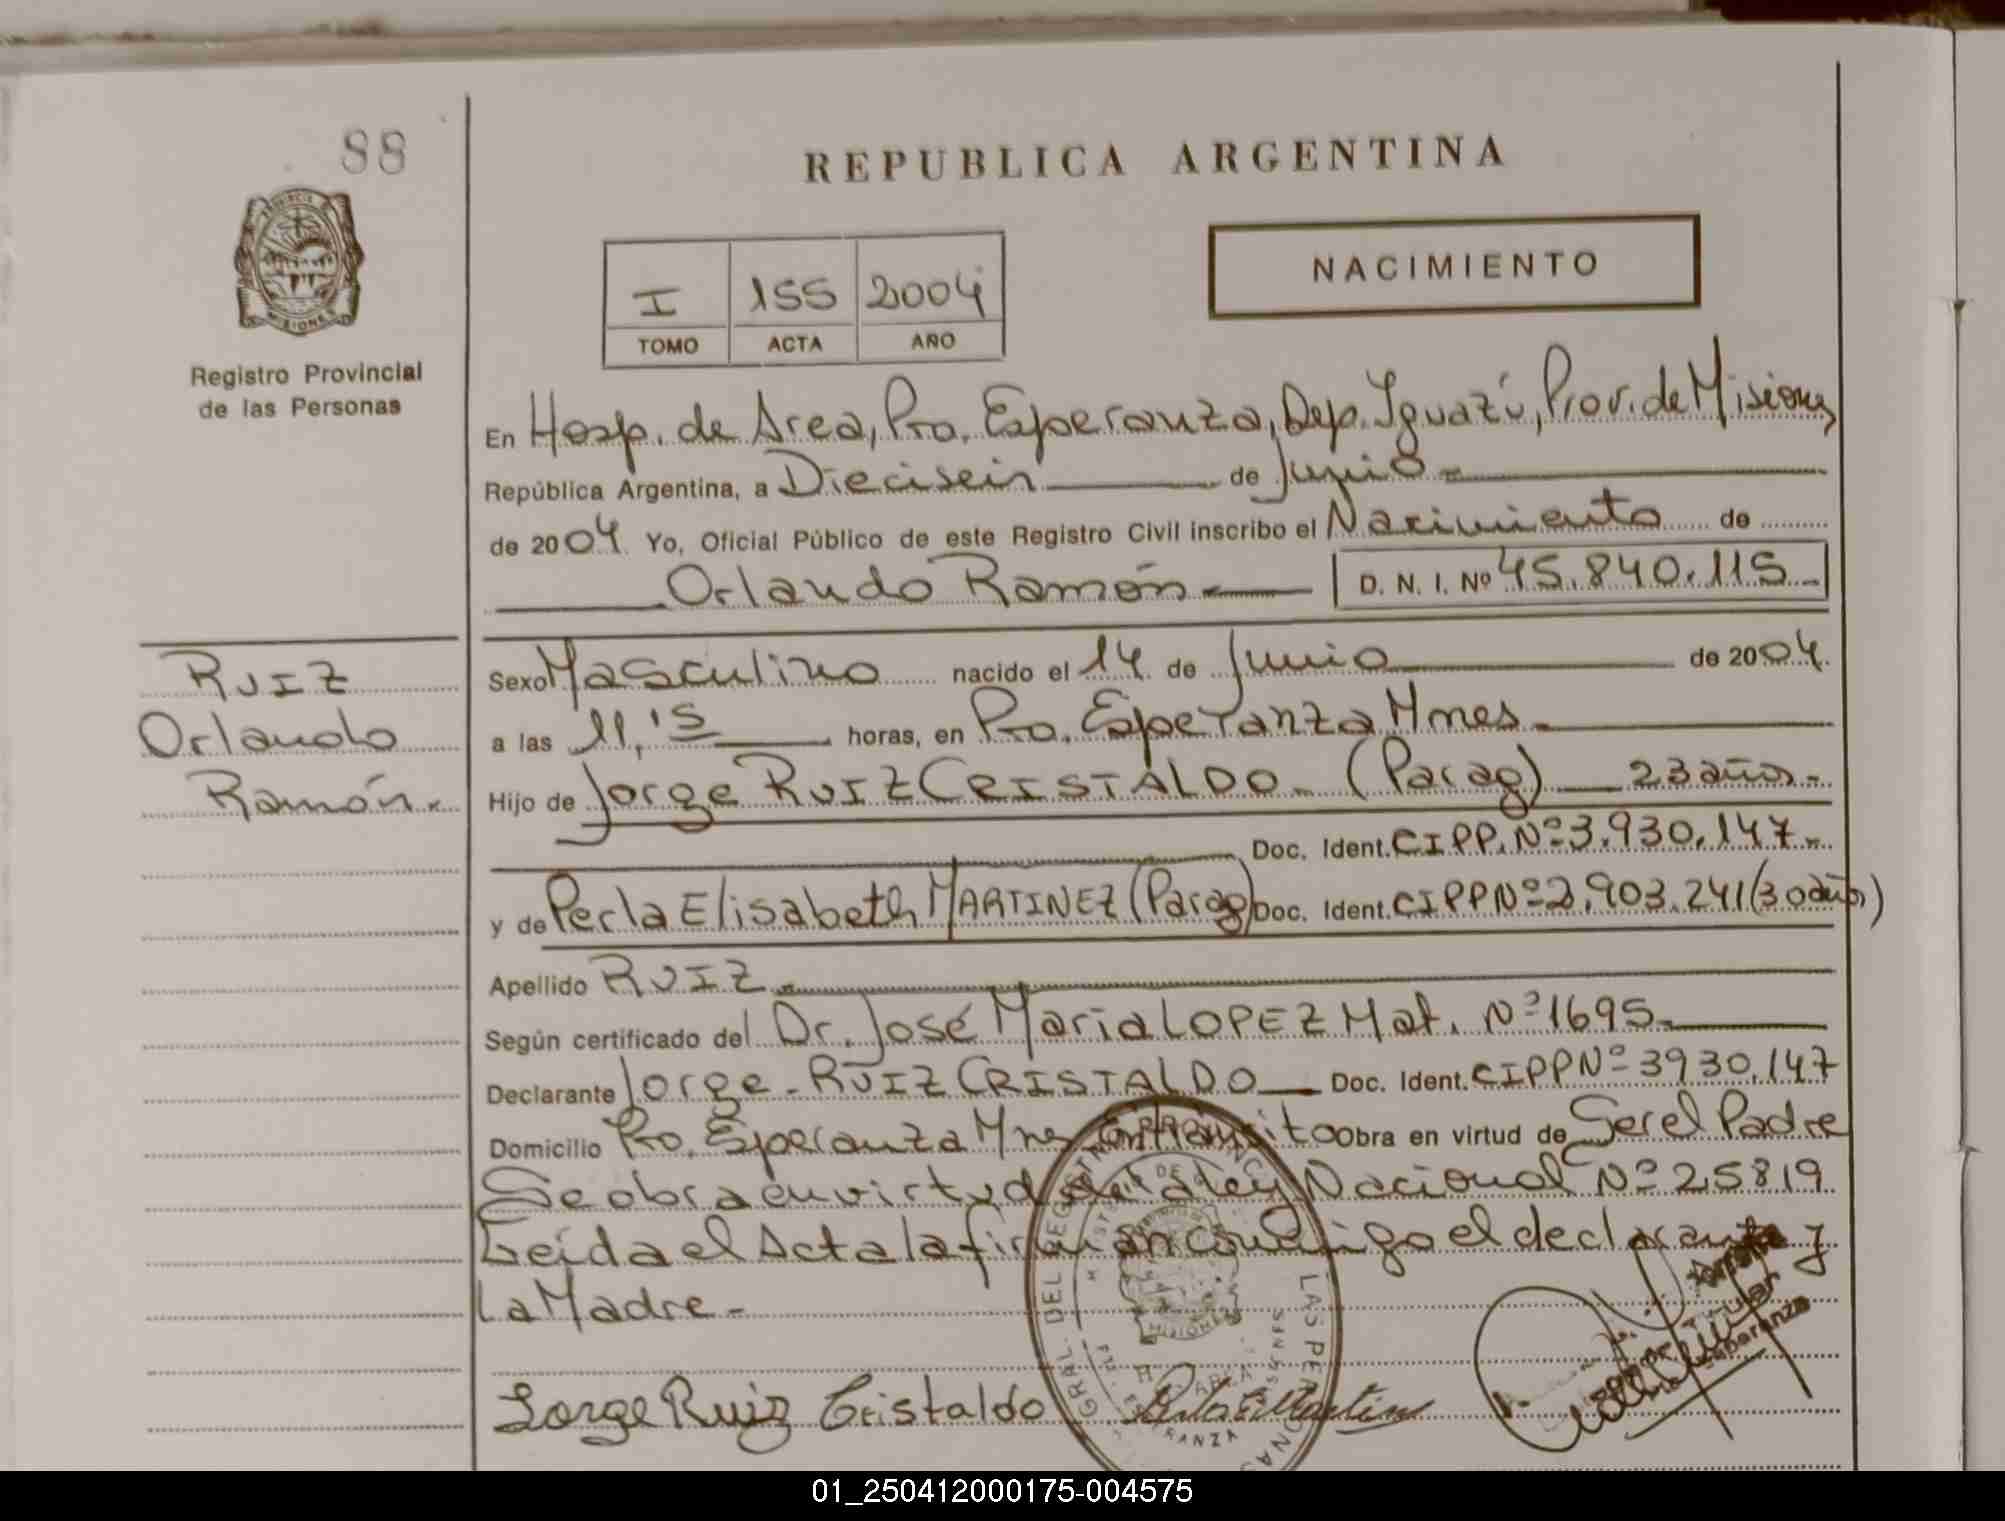 88
REPUBLICA ARGENTINA
NACIMIENTO
I 155 2004
TOMO ACTA AÑO
PROVINCIA DE
MISIONES
Registro Provincial
de las Personas
En Hosp. de Area, Pto. Esperanza, Dep. Iguazú, Prov. de Misiones
República Argentina, a Dieciseis de Junio
de 2004 Yo, Oficial Público de este Registro Civil inscribo el Nacimiento de
Orlando Ramón D. N. I. Nº 45.840.115
RUIZ
Orlando
Ramón
Sexo Masculino nacido el 14 de Junio de 2004
a las 11,15 horas, en Pto. Esperanza Mnes.
Hijo de Jorge RUIZ CRISTALDO (Parag) 23 años
Doc. Ident. CIPP. Nº 3.930.147
y de Perla Elisabeth MARTINEZ (Parag) Doc. Ident. CIPP Nº 2.903.241 (30 años)
Apellido RUIZ
Según certificado del Dr. José Maria LOPEZ Mat. Nº 1695
Declarante Jorge RUIZ CRISTALDO Doc. Ident. CIPP Nº 3930.147
Domicilio Pto. Esperanza Mnes en transito Obra en virtud de Ser el Padre
Se obra en virtud de la ley Nacional Nº 25819
Leída el Acta la firman conmigo el declarante y
la Madre
Jorge Ruiz Cristaldo
01_250412000175-004575